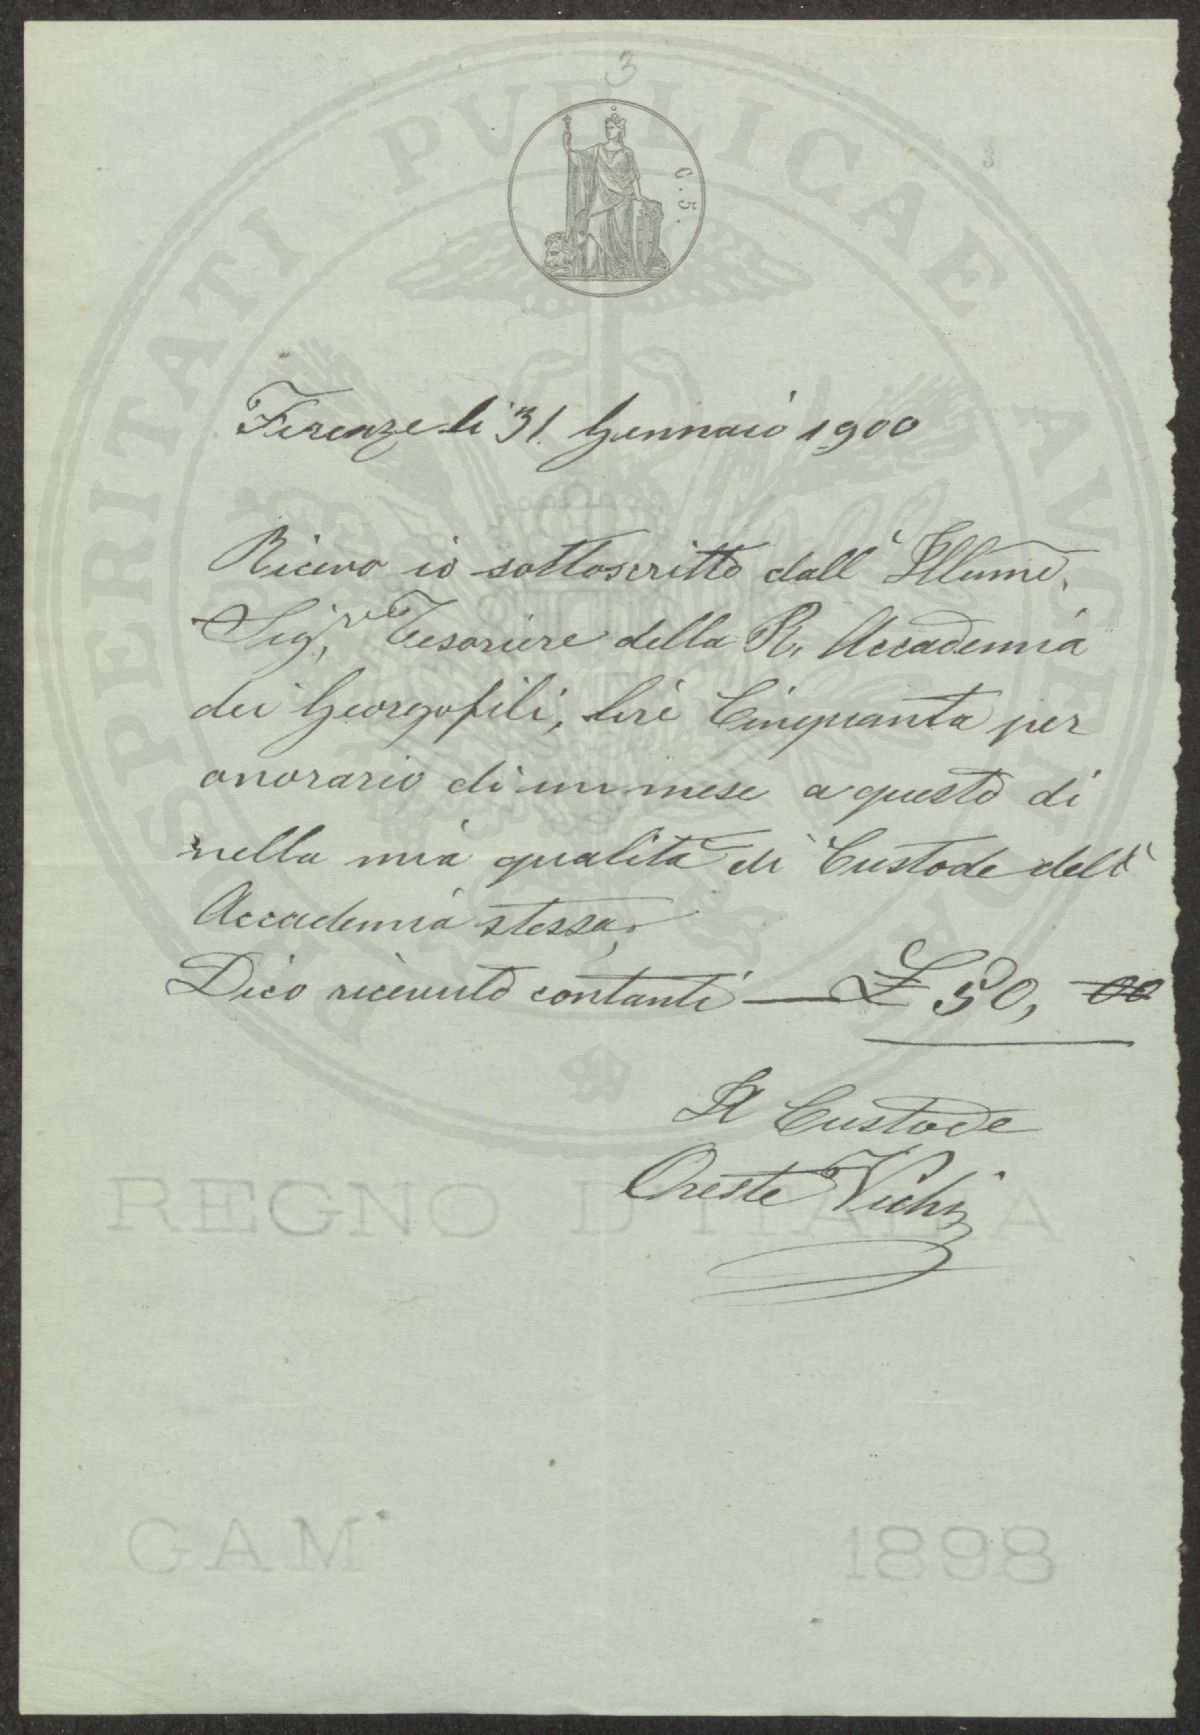 3
C. 5.
PROSPERITATI PVBLICAE AVGENDAE
Firenze li 31. Gennaio 1900
Ricevo io sottoscritto dall' Illumo.
Sig.r Tesoriere della R. Accademia
dei Georgofili, lire Cinquanta per
onorario di un mese a questo di
nella mia qualità di Custode dell'
Accademia stessa,
Dico ricevuto contanti — £ 50, 00
Il Custode
Oreste Vichi
REGNO D'ITALIA
GAM 1898